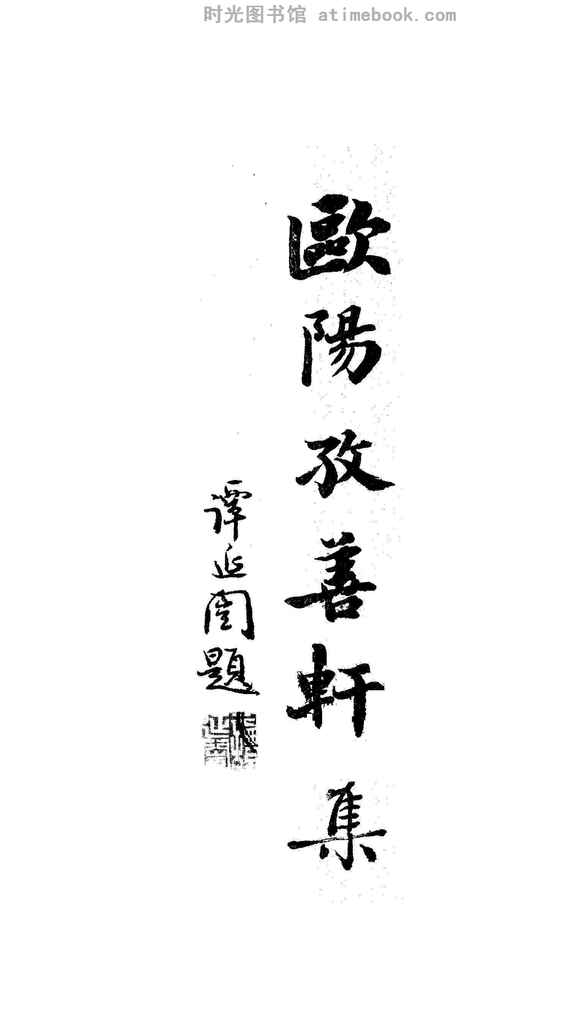 时光图书馆 atimebook.com
歐陽孜善軒集
譚延闓題